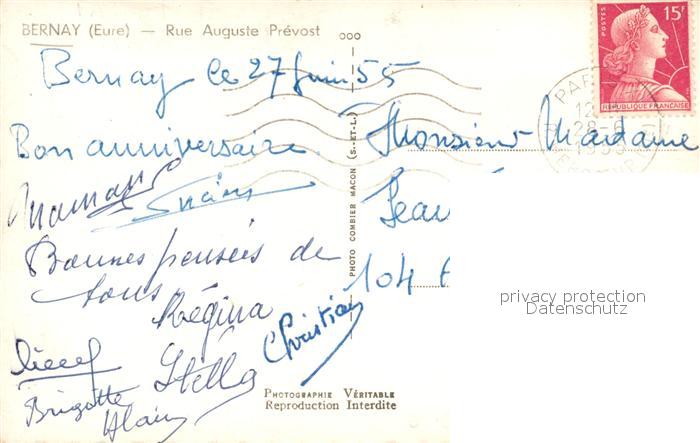 BERNAY (Eure) — Rue Auguste Prévost
Bernay le 27 Juin 55
Bon anniversaire
Maman
Bonnes pensées de
tous
Régina
Christian
Stella
Brigitte
Alain
PHOTOGRAPHIE VÉRITABLE
Reproduction Interdite
PHOTO COMBIER MACON (S.-ET-L.)
POSTES
15F
REPUBLIQUE FRANÇAISE
Monsieur Madame
Jean
104
privacy protection
Datenschutz